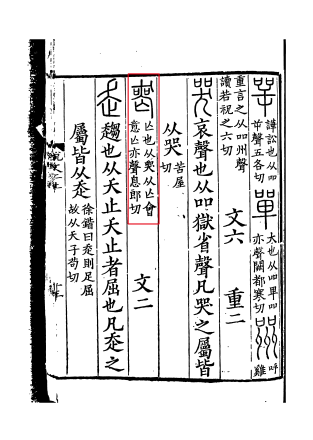 咢 譁訟也从吅屰聲五各切 單 大也从吅𤰔吅亦聲闕都寒切 喌 呼雞
重言之从吅州聲讀若祝之六切 文六 重二
哭 哀聲也从吅獄省聲凡哭之屬皆
从哭 苦屋切
喪 亾也从哭从亾會意亾亦聲息郎切 文二
𧺆 趨也从夭止夭止者屈也凡𧺆之
屬皆从𧺆 徐鍇曰𧺆則足屈故从夭子苟切